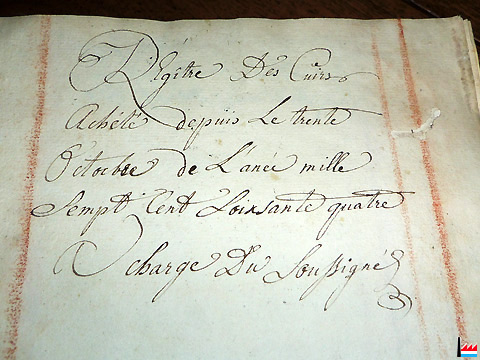 Régître Des Cuirs
Achété depuis Le trente
Octocbre de L'anée mille
Sempt Cent Soixsante quatre
à charge Du Soussigné